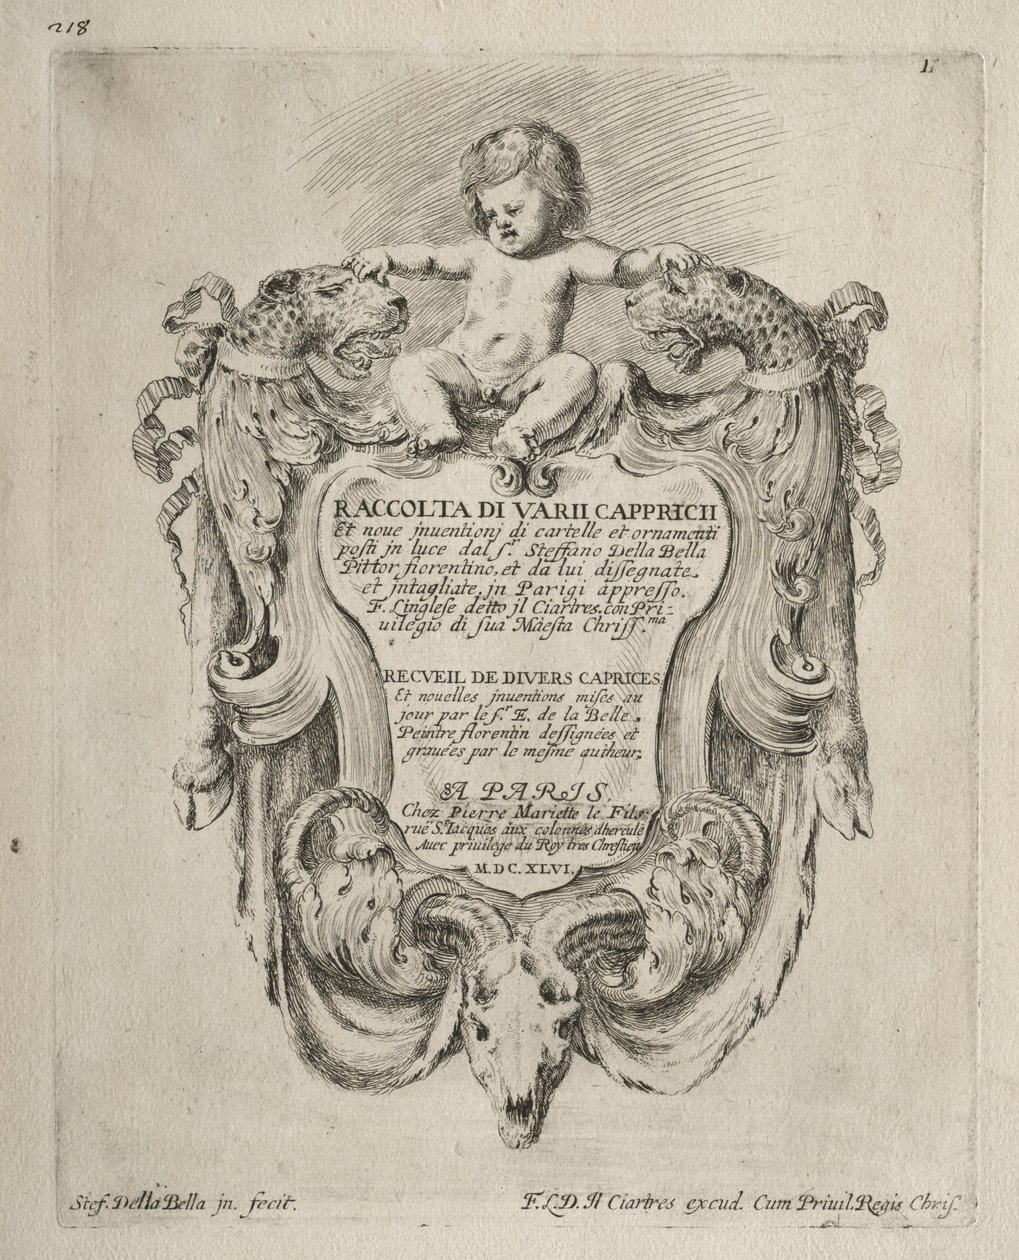 218
1.
RACCOLTA DI VARII CAPPRICII
Et noue jnuentionj di cartelle et ornamenti
posti jn luce dal s.r Steffano Della Bella
Pittor fiorentino, et da lui dissegnate
et jntagliate, jn Parigi appresso.
F. L'inglese detto jl Ciartres. con Pri-
uilegio di sua Maesta Chriss.ma
RECVEIL DE DIVERS CAPRICES
Et nouelles jnuentions mises au
jour par le s.r E. de la Belle
Peintre florentin dessignées et
grauées par le mesme autheur,
A PARIS,
Chez Pierre Mariette le Fils
ruë St. Iacques aux colonnes dhercule
Auec priuilege du Roy tres Chrestien
M.DC.XLVI.
Stef. Della Bella jn. fecit.
F.L.D. Il Ciartres excud. Cum Priuil. Regis Chris.